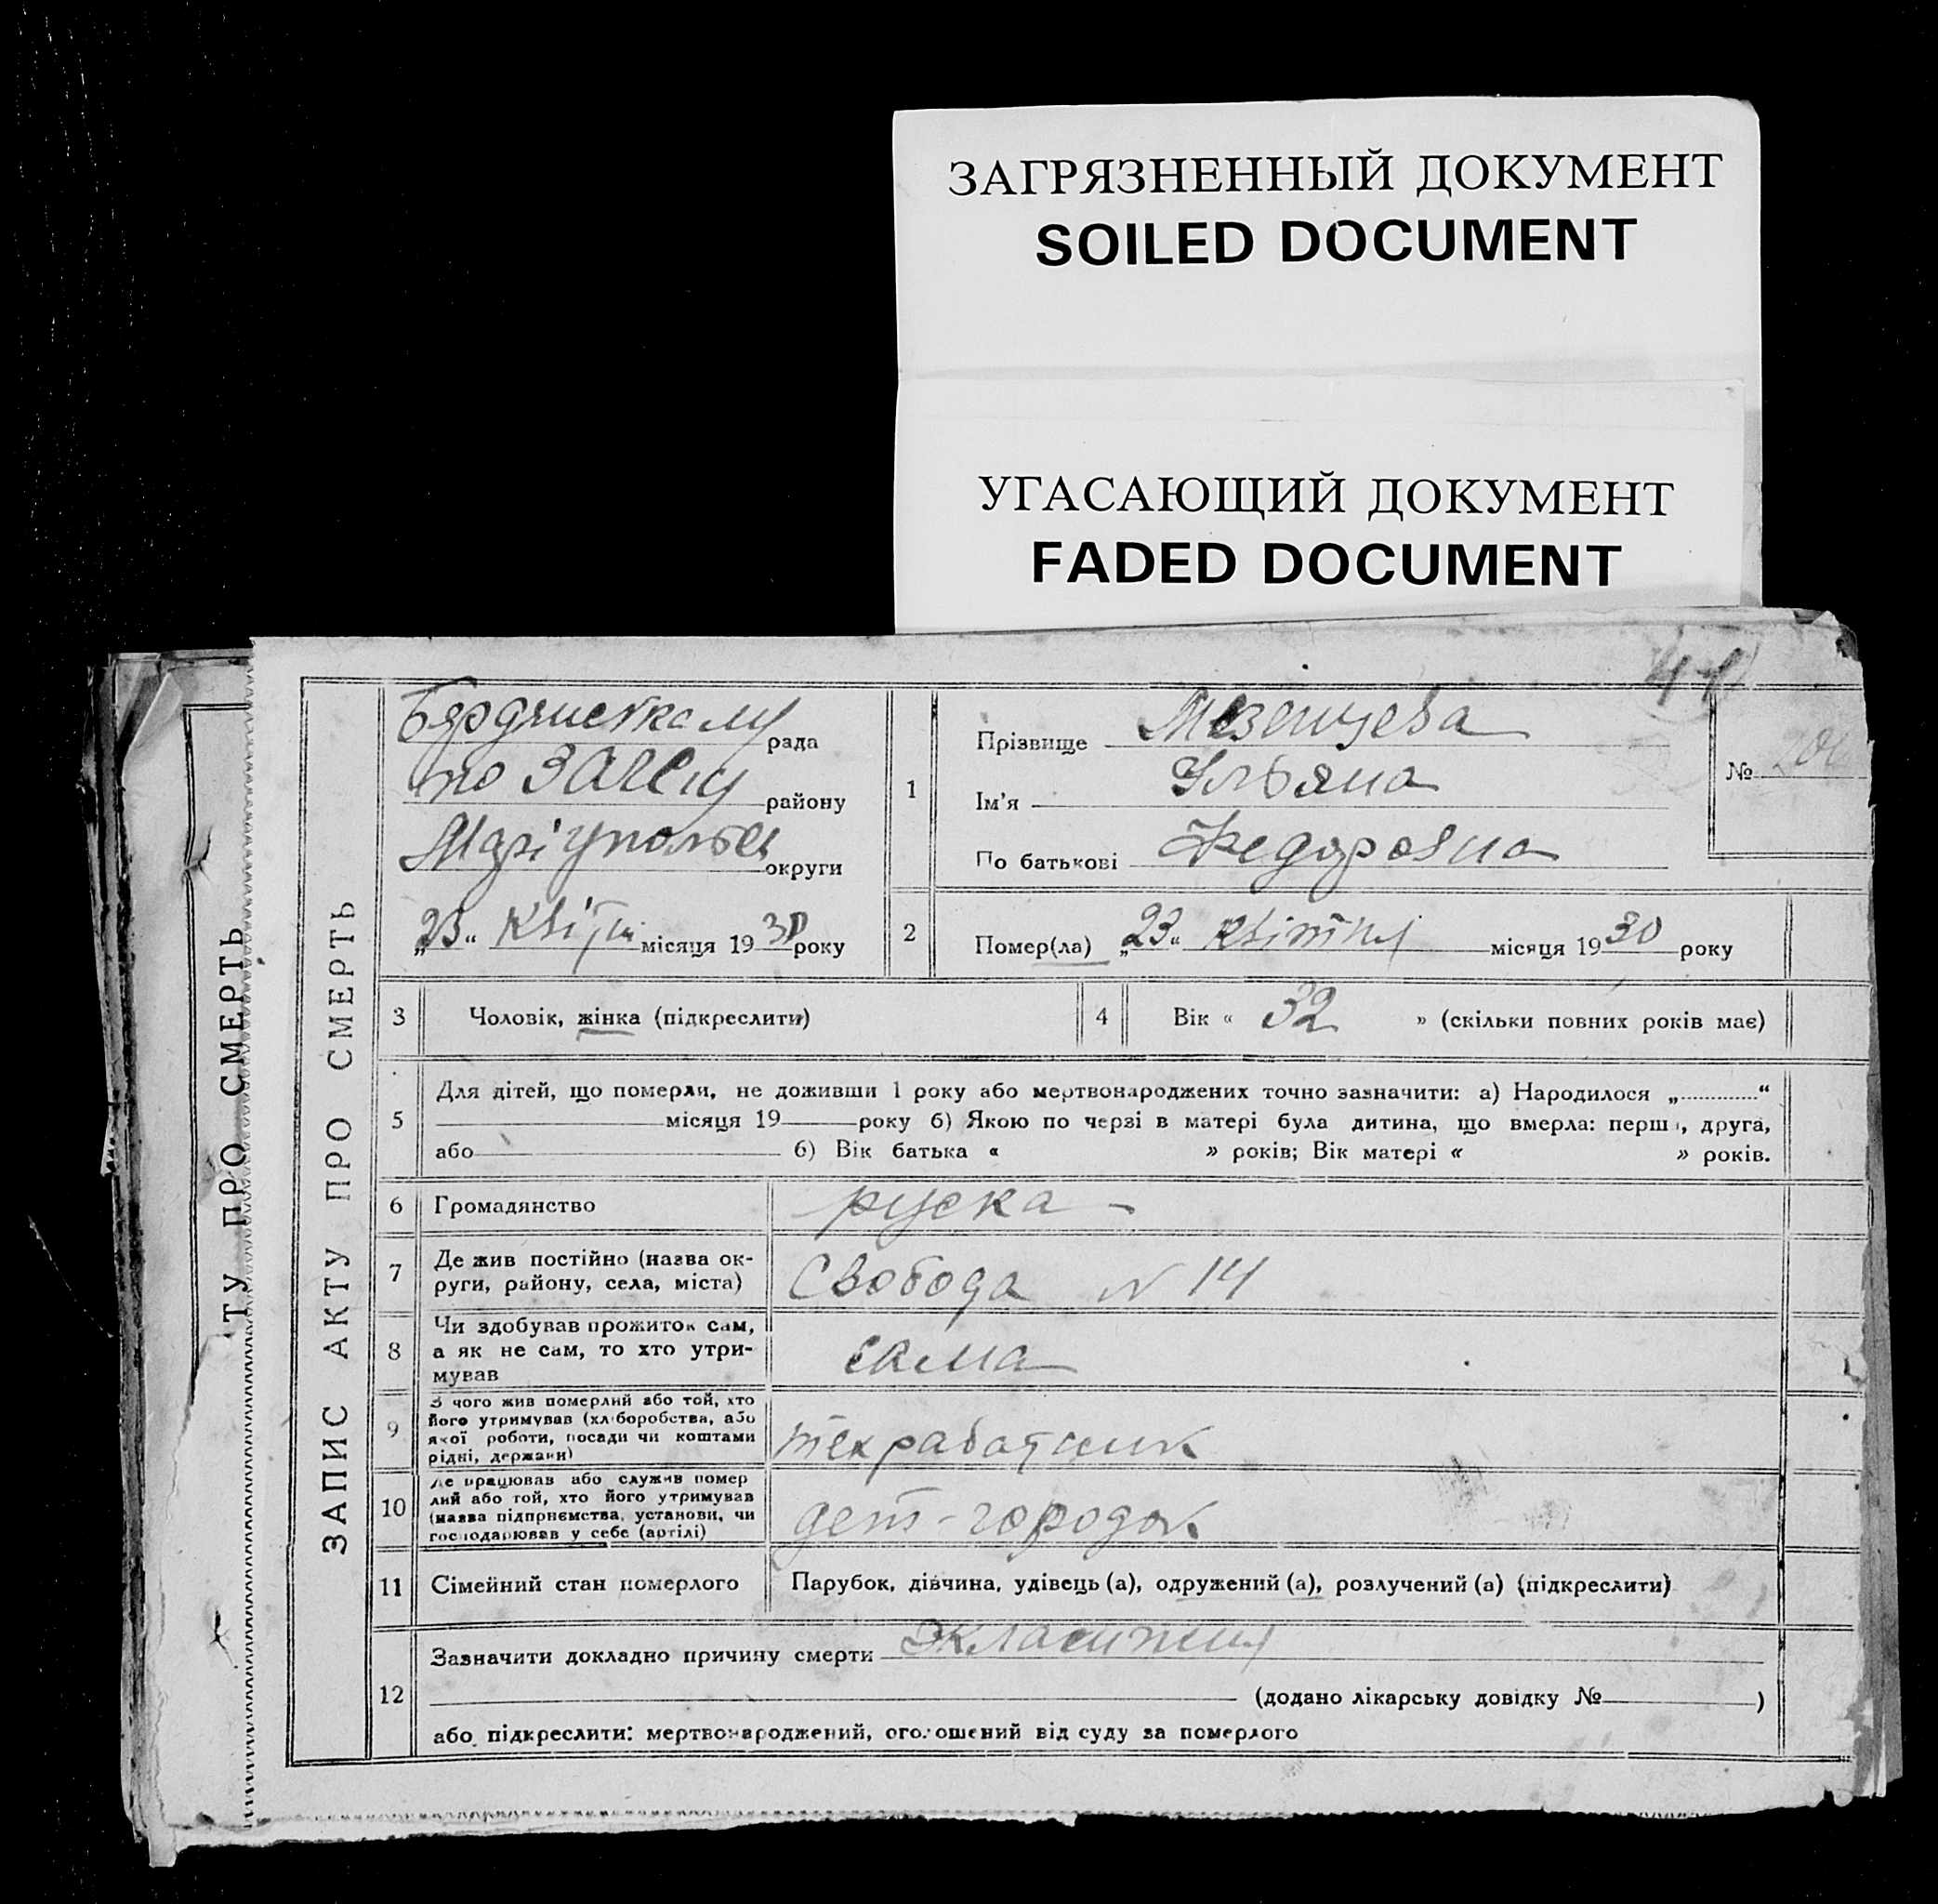 ЗАГРЯЗНЕННЫЙ ДОКУМЕНТ
SOILED DOCUMENT
УГАСАЮЩИЙ ДОКУМЕНТ
FADED DOCUMENT
ТУ ПРО СМЕРТЬ
ЗАПИС АКТУ ПРО СМЕРТЬ
рада
району
округи
„23“ місяця 1930 року
1
Прізвище Мезенцева
Ім'я Ульяна
По батькові Федоровна
№
2
Помер(ла) „23“ квітня місяця 1930 року
3
Чоловік, жінка (підкреслити)
4
Вік « 32 » (скільки повних років має)
5
Для дітей, що померли, не доживши 1 року або мертвонароджених точно зазначити: а) Народилося „ “
місяця 19 року б) Якою по черзі в матері була дитина, що вмерла: перш, друга,
або б) Вік батька « » років; Вік матері « » років.
6
Громадянство
руска
7
Де жив постійно (назва ок-
руги, району, села, міста)
Свобода N 14
8
Чи здобував прожиток сам,
а як не сам, то хто утри-
мував
сама
9
З чого жив померлий або той, хто
його утримував (хліборобства, або
якої роботи, посади чи коштами
рідні, держави)
техработник
10
Де працював або служив помер
лий або той, хто його утримував
(назва підприємства, установи, чи
господарював у себе (артілі)
дет-городок
11
Сімейний стан померлого
Парубок, дівчина, удівець (а), одружений (а), розлучений (а) (підкреслити)
12
Зазначити докладно причину смерти
(додано лікарську довідку № )
або підкреслити: мертвонароджений, оголошений від суду за померлого